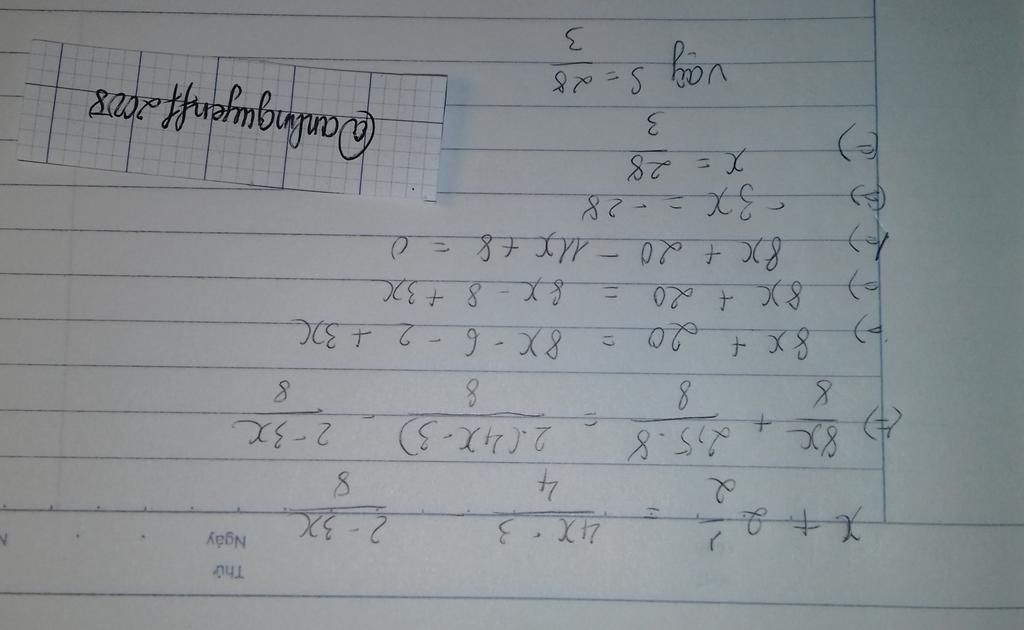 Thứ
Ngày
x + 2 1/2 = 4x - 3/4 - 2 - 3x/8
(=) 8x/8 + 2,5.8/8 = 2.(4x - 3)/8 - 2 - 3x/8
=) 8x + 20 = 8x - 6 - 2 + 3x
=) 8x + 20 = 8x - 8 + 3x
(=) 8x + 20 - 11x + 8 = 0
(=) - 3x = - 28
(=) x = 28/3
Vậy S = 28/3
@anhnguyenff2008